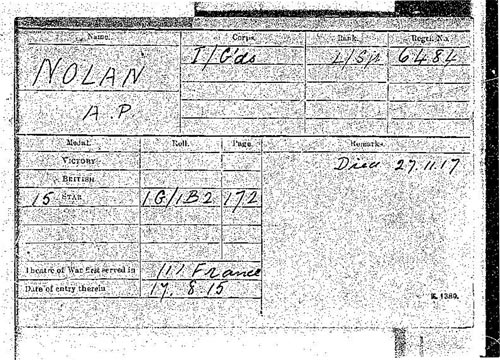 Name. Corps. Rank. Regtl. No.
NOLAN I/Gds L/Sjt 6484
A.P.
Medal. Roll. Page. Remarks.
VICTORY Died 27.11.17
BRITISH
15 STAR IG/1B2 172
Theatre of War first served in (1) France
Date of entry therein 17.8.15
K. 1380.